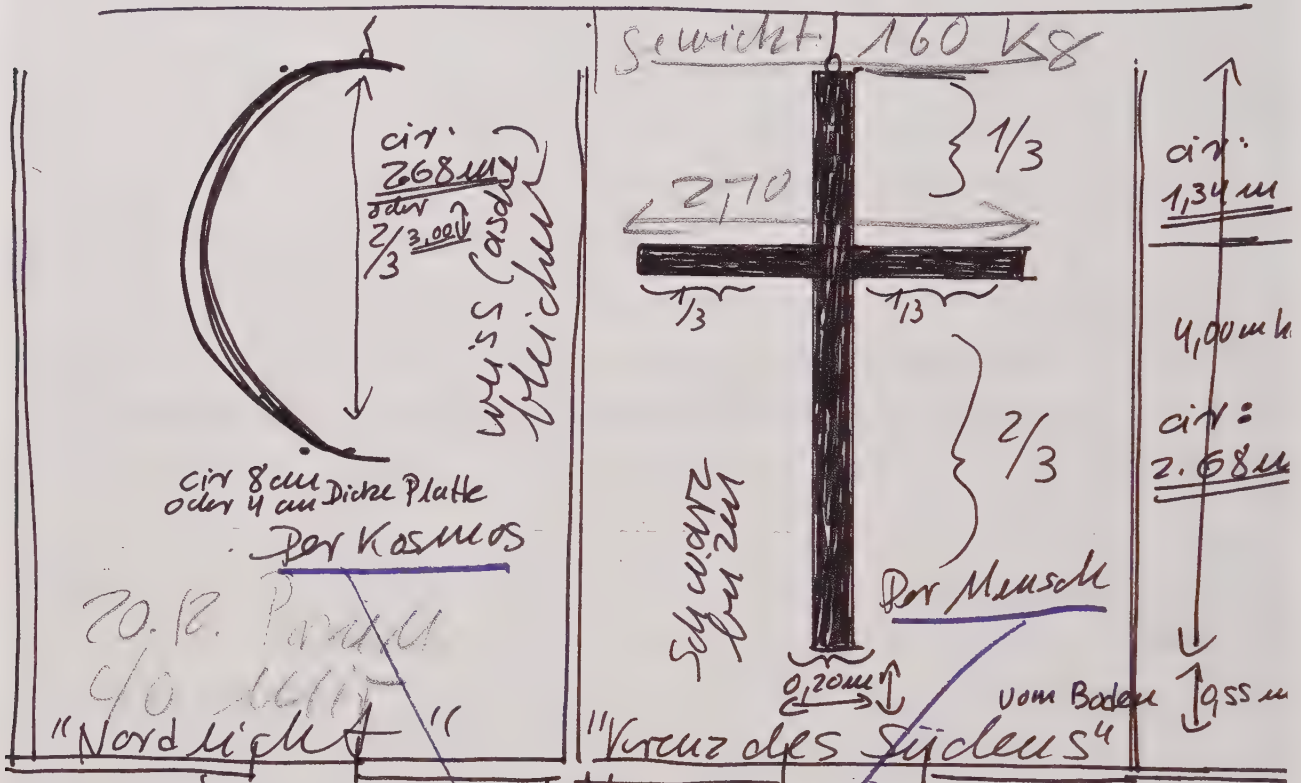 Gewicht: 160 Kg
cir.
2.68 m
oder
2/3 3,00
weiss (asche)
bleichen
cir 8 cm
oder 4 cm Dicke Platte
Der Kosmos
20.12.
c/o
"Nordlicht"
1/3
2,70
1/3
1/3
2/3
Schwarz
beizen
Der Mensch
0,20 m
vom Boden
0,55 m
"Kreuz des Südens"
cir:
1,34 m
4,00 m h
cir:
2.68 m